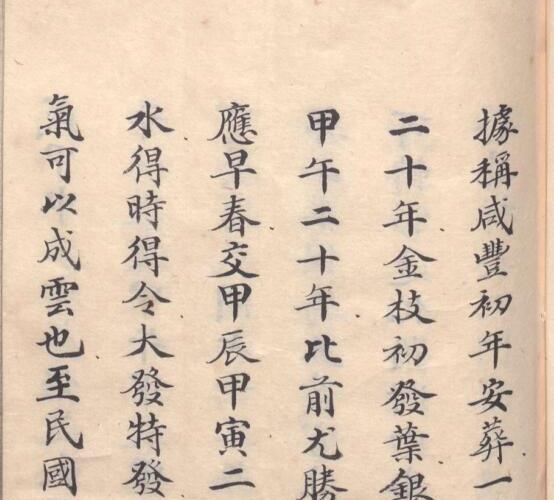 據稱咸豐初年安葬一
二十年金枝初發葉銀
甲午二十年比前尤勝
應早春交甲辰甲寅二
水得時得令大發特發
氣可以成雲也至民國